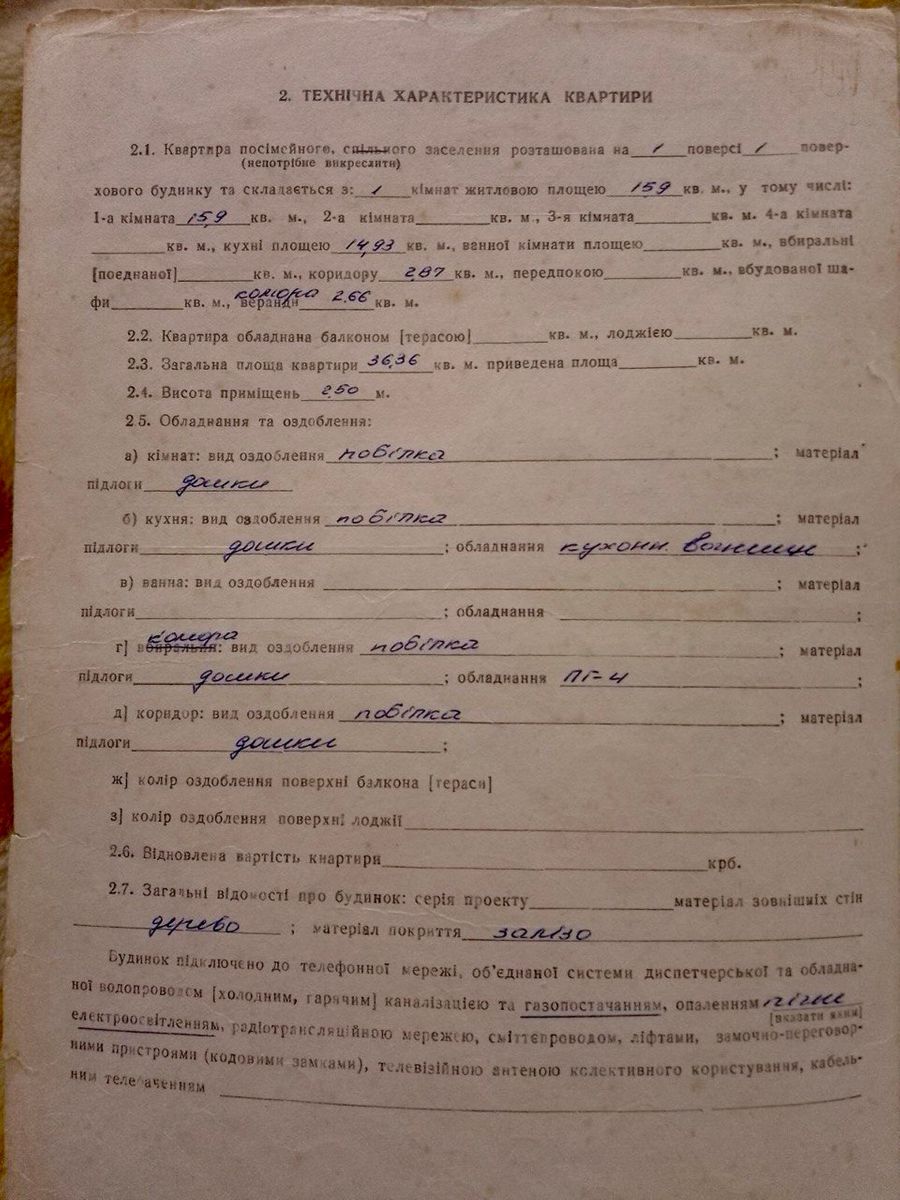 2. ТЕХНІЧНА ХАРАКТЕРИСТИКА КВАРТИРИ
2.1. Квартира посімейного, спільного заселення розташована на 1 поверсі 1 повер-
(непотрібне викреслити)
хового будинку та складається з: 1 кімнат житловою площею 15,9 кв. м., у тому числі:
1-а кімната 15,9 кв. м., 2-а кімната кв. м., 3-я кімната кв. м. 4-а кімната
кв. м., кухні площею 14,93 кв. м., ванної кімнати площею кв. м., вбиральні
[поєднаної] кв. м., коридору 2,87 кв. м., передпокою кв. м., вбудованої ша-
комора
фи кв. м., веранди 2,66 кв. м.
2.2. Квартира обладнана балконом [терасою] кв. м., лоджією кв. м.
2.3. Загальна площа квартири 36,36 кв. м. приведена площа кв. м.
2.4. Висота приміщень 2,50 м.
2.5. Обладнання та оздоблення:
а) кімнат: вид оздоблення побілка ; матеріал
підлоги дошки
б) кухня: вид оздоблення побілка ; матеріал
підлоги дошки ; обладнання кухонн. вогнищ ;
в) ванна: вид оздоблення ; матеріал
підлоги ; обладнання ;
комора
г] вбиральня: вид оздоблення побілка ; матеріал
підлоги дошки ; обладнання ПГ-4 ;
д] коридор: вид оздоблення побілка ; матеріал
підлоги дошки ;
ж] колір оздоблення поверхні балкона [тераси]
з] колір оздоблення поверхні лоджії
2.6. Відновлена вартість квартири крб.
2.7. Загальні відомості про будинок: серія проекту матеріал зовнішміх стін
дерево ; матеріал покриття залізо
Будинок підключено до телефонної мережі, об'єднаної системи диспетчерської та обладна-
ної водопроводом [холодним, гарячим] каналізацією та газопостачанням, опаленням пічне
[вказати яким]
електроосвітленням, радіотрансляційною мережею, сміттєпроводом, ліфтами, замочно-переговор-
ними пристроями (кодовими замками), телевізійною антеною колективного користування, кабель-
ним телебаченням